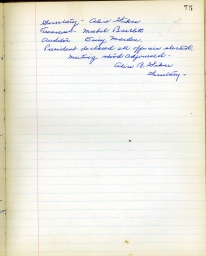 75
Secretary - Alice Fisher
Treasurer - Mabel Bartlett
Auditor Daisy Marden
President declared all officers elected.
Meeting stood adjourned -
Alice E. Fisher
Secretary -